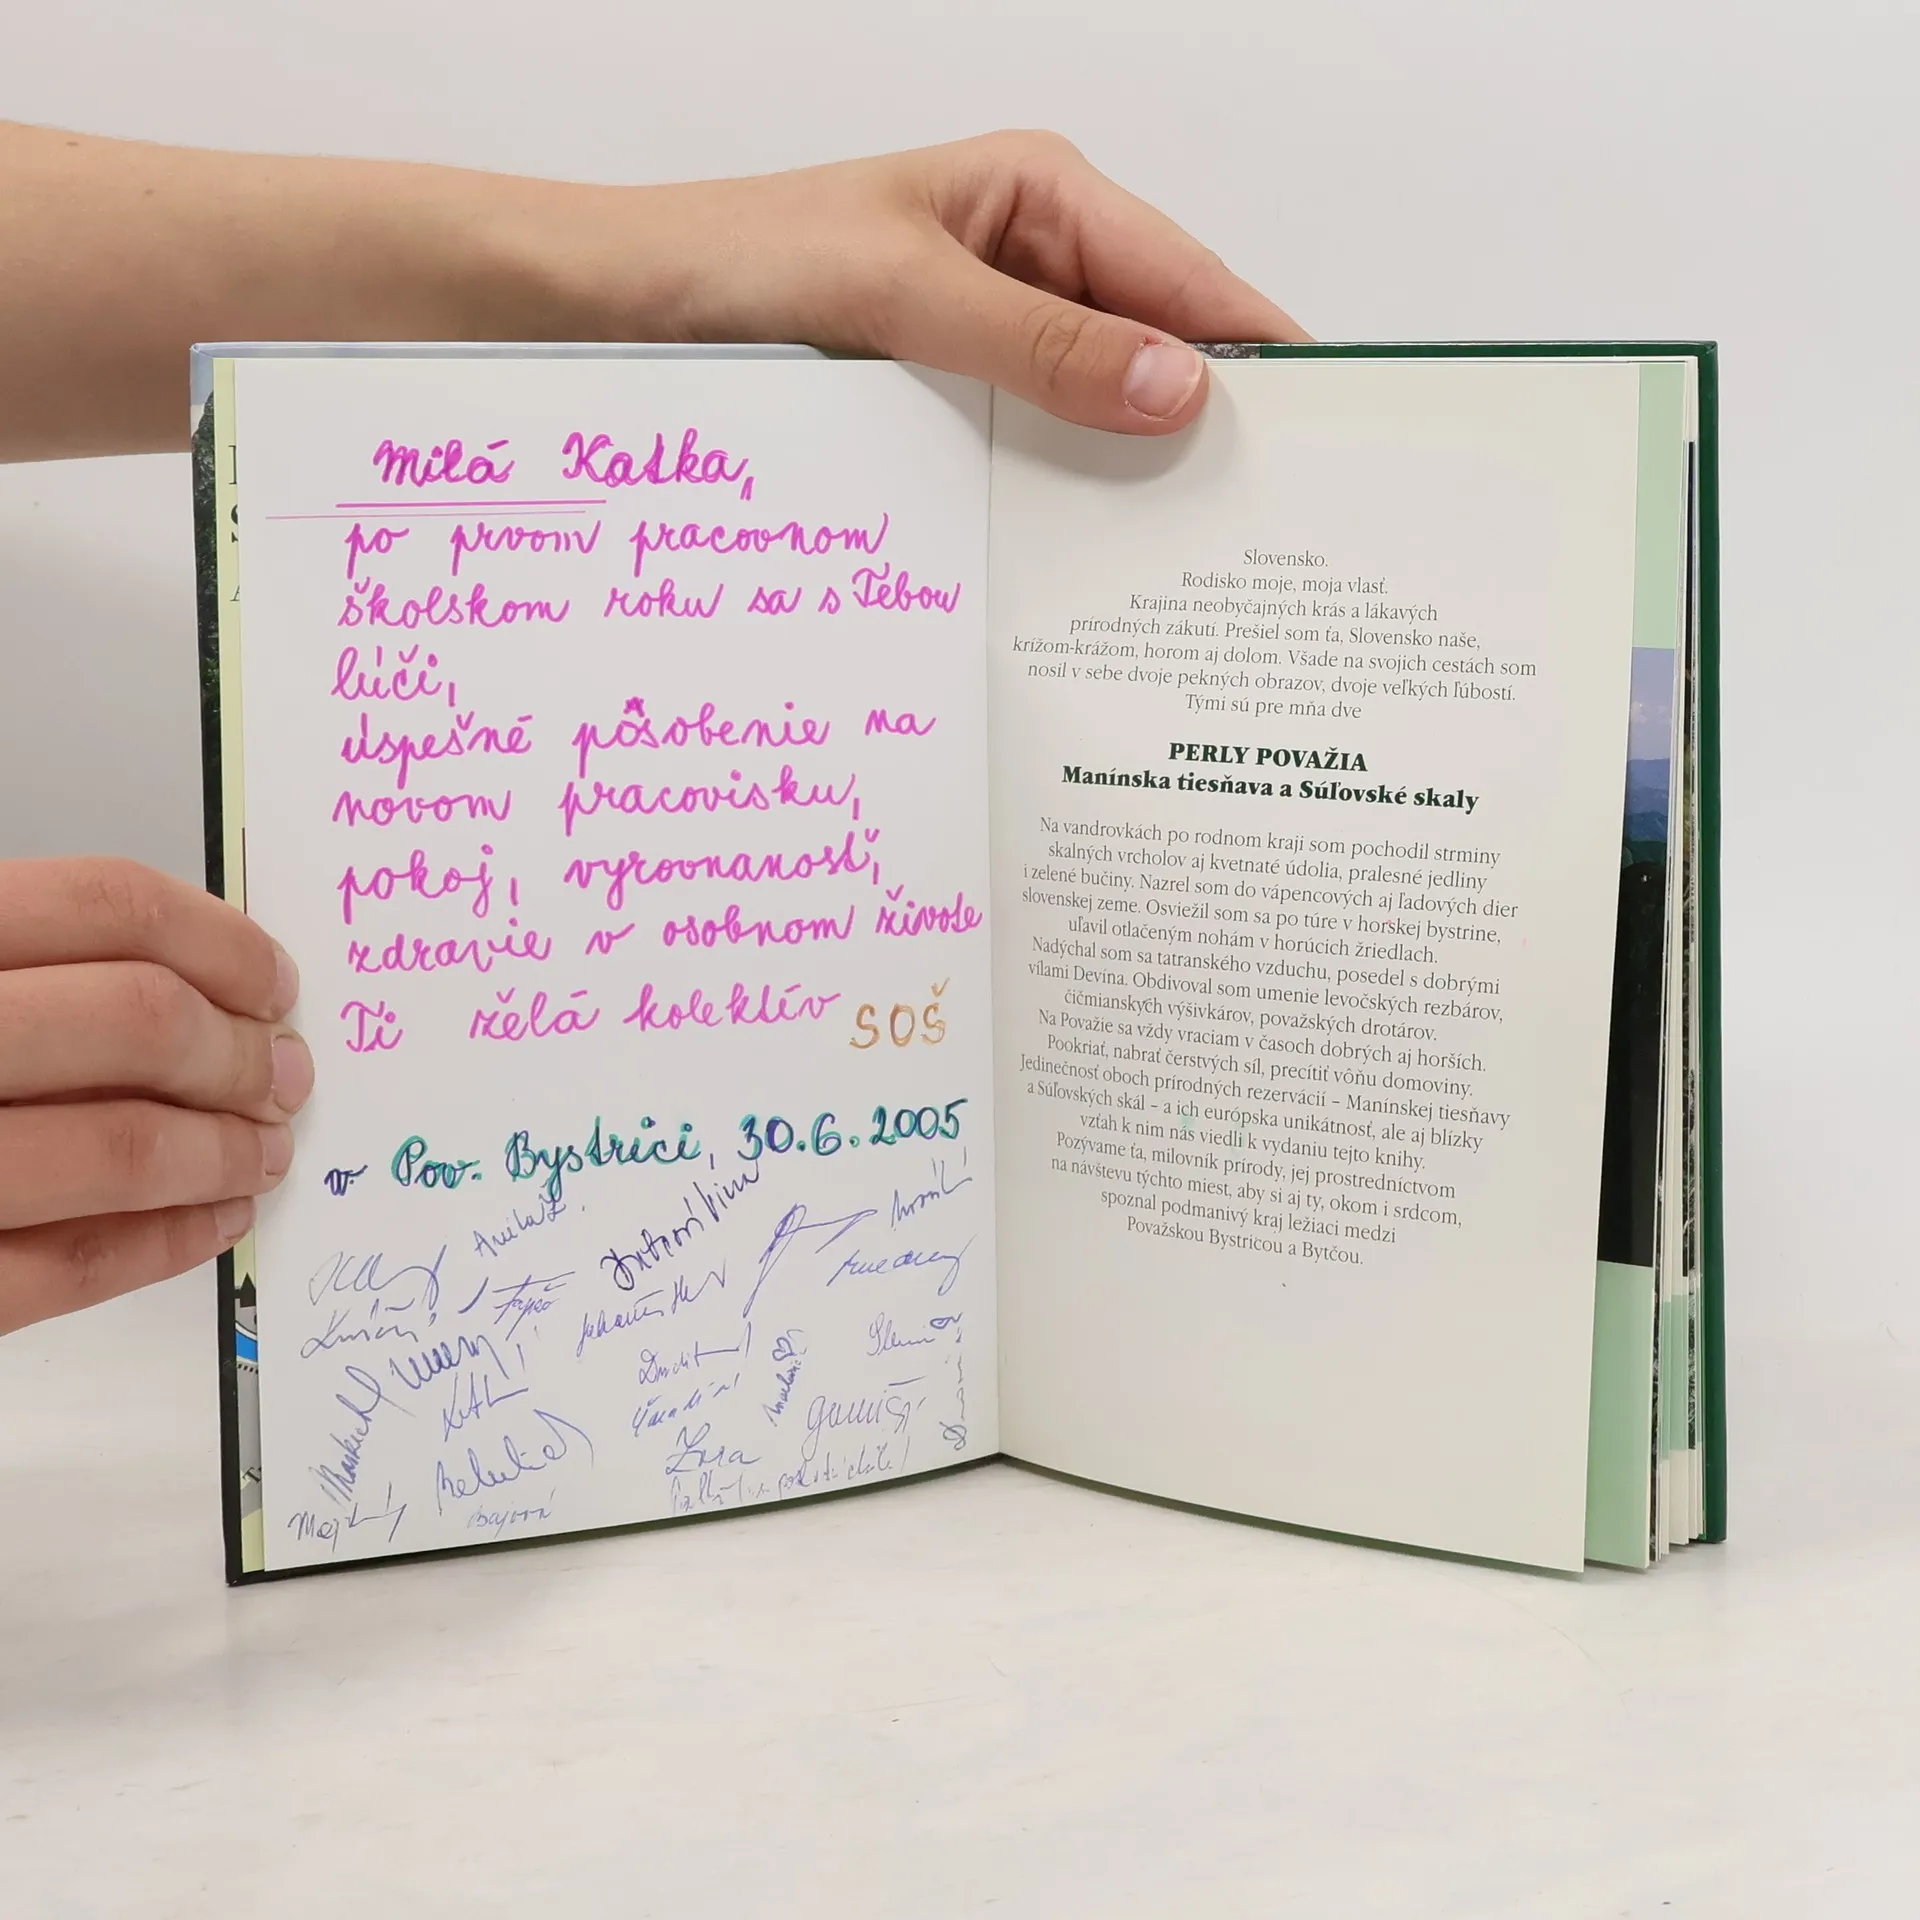 Milá Katka,
po prvom pracovnom
školskom roku sa s Tebou
lúči,
úspešné pôsobenie na
novom pracovisku,
pokoj, vyrovnanosť,
zdravie v osobnom živote
Ti želá kolektív SOŠ
v Pov. Bystrici, 30.6.2005
Zora
Bajová
Slovensko.
Rodisko moje, moja vlasť.
Krajina neobyčajných krás a lákavých
prírodných zákutí. Prešiel som ťa, Slovensko naše,
krížom-krážom, horom aj dolom. Všade na svojich cestách som
nosil v sebe dvoje pekných obrazov, dvoje veľkých ľúbostí.
Tými sú pre mňa dve
PERLY POVAŽIA
Manínska tiesňava a Súľovské skaly
Na vandrovkách po rodnom kraji som pochodil strminy
skalných vrcholov aj kvetnaté údolia, pralesné jedliny
i zelené bučiny. Nazrel som do vápencových aj ľadových dier
slovenskej zeme. Osviežil som sa po túre v horskej bystrine,
uľavil otlačeným nohám v horúcich žriedlach.
Nadýchal som sa tatranského vzduchu, posedel s dobrými
vílami Devína. Obdivoval som umenie levočských rezbárov,
čičmianskych výšivkárov, považských drotárov.
Na Považie sa vždy vraciam v časoch dobrých aj horších.
Pookriať, nabrať čerstvých síl, precítiť vôňu domoviny.
Jedinečnosť oboch prírodných rezervácií – Manínskej tiesňavy
a Súľovských skál – a ich európska unikátnosť, ale aj blízky
vzťah k nim nás viedli k vydaniu tejto knihy.
Pozývame ťa, milovník prírody, jej prostredníctvom
na návštevu týchto miest, aby si aj ty, okom i srdcom,
spoznal podmanivý kraj ležiaci medzi
Považskou Bystricou a Bytčou.